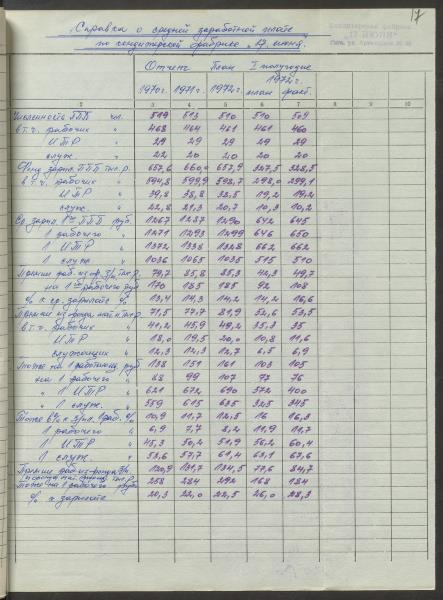 17
Справка о средней заработной плате
по кондитерской фабрике "17 июня".
Отчет План I полугодие
1972г.
1970г. 1971г. 1972г. план факт.
2 3 4 5 6 7 8 9 10
Численность ППП чел. 519 513 510 510 509
в т.ч. рабочих " 468 464 461 461 460
ИТР " 29 29 29 29 29
служ. " 22 20 20 20 20
Фонд зарпл. ППП тыс.р. 657,6 660,0 657,9 327,5 328,5
в т.ч. рабочих " 594,8 599,9 598,7 298,0 299,1
ИТР " 39,8 38,8 38,5 19,2 19,2
служ. " 22,8 21,3 20,7 10,3 10,2
Ср. зарпл. 1го ППП руб. 1267 1287 1290 642 645
1 рабочего " 1271 1293 1299 646 650
1 ИТР " 1372 1338 1328 662 662
1 служ. " 1036 1065 1035 515 510
Премии раб. из фр. З/пл тыс.р. 79,7 85,8 85,3 42,3 49,7
на 1го рабочего руб 170 185 185 92 108
% к ср. зарплате % 13,4 14,3 14,2 14,2 16,6
Премии из фонда мат.п. тыс.р. 71,5 77,7 81,9 52,6 53,5
в т.ч. рабочих " 41,2 45,9 49,2 35,3 35
ИТР " 18,0 19,5 20,0 10,8 11,6
служащих " 12,3 12,3 12,7 6,5 6,9
Тоже на 1 работающ. руб 138 151 161 103 105
на 1 рабочего " 88 99 107 77 76
" 1 ИТР " 621 672 690 372 400
" 1 служ. " 559 615 635 325 345
Тоже в % к з/пл. 1 раб. % 10,9 11,7 12,5 16 16,3
1 рабочего " 6,9 7,7 8,2 11,9 11,7
1 ИТР " 45,3 50,2 51,9 56,2 60,4
1 служ. " 53,6 57,7 61,4 63,1 67,6
Премии раб. из фонда З/п. 120,9 131,7 134,5 77,6 84,7
Тоже на 1 рабочего руб. 258 284 292 168 184
% к зарплате 20,3 22,0 22,5 26,0 28,3